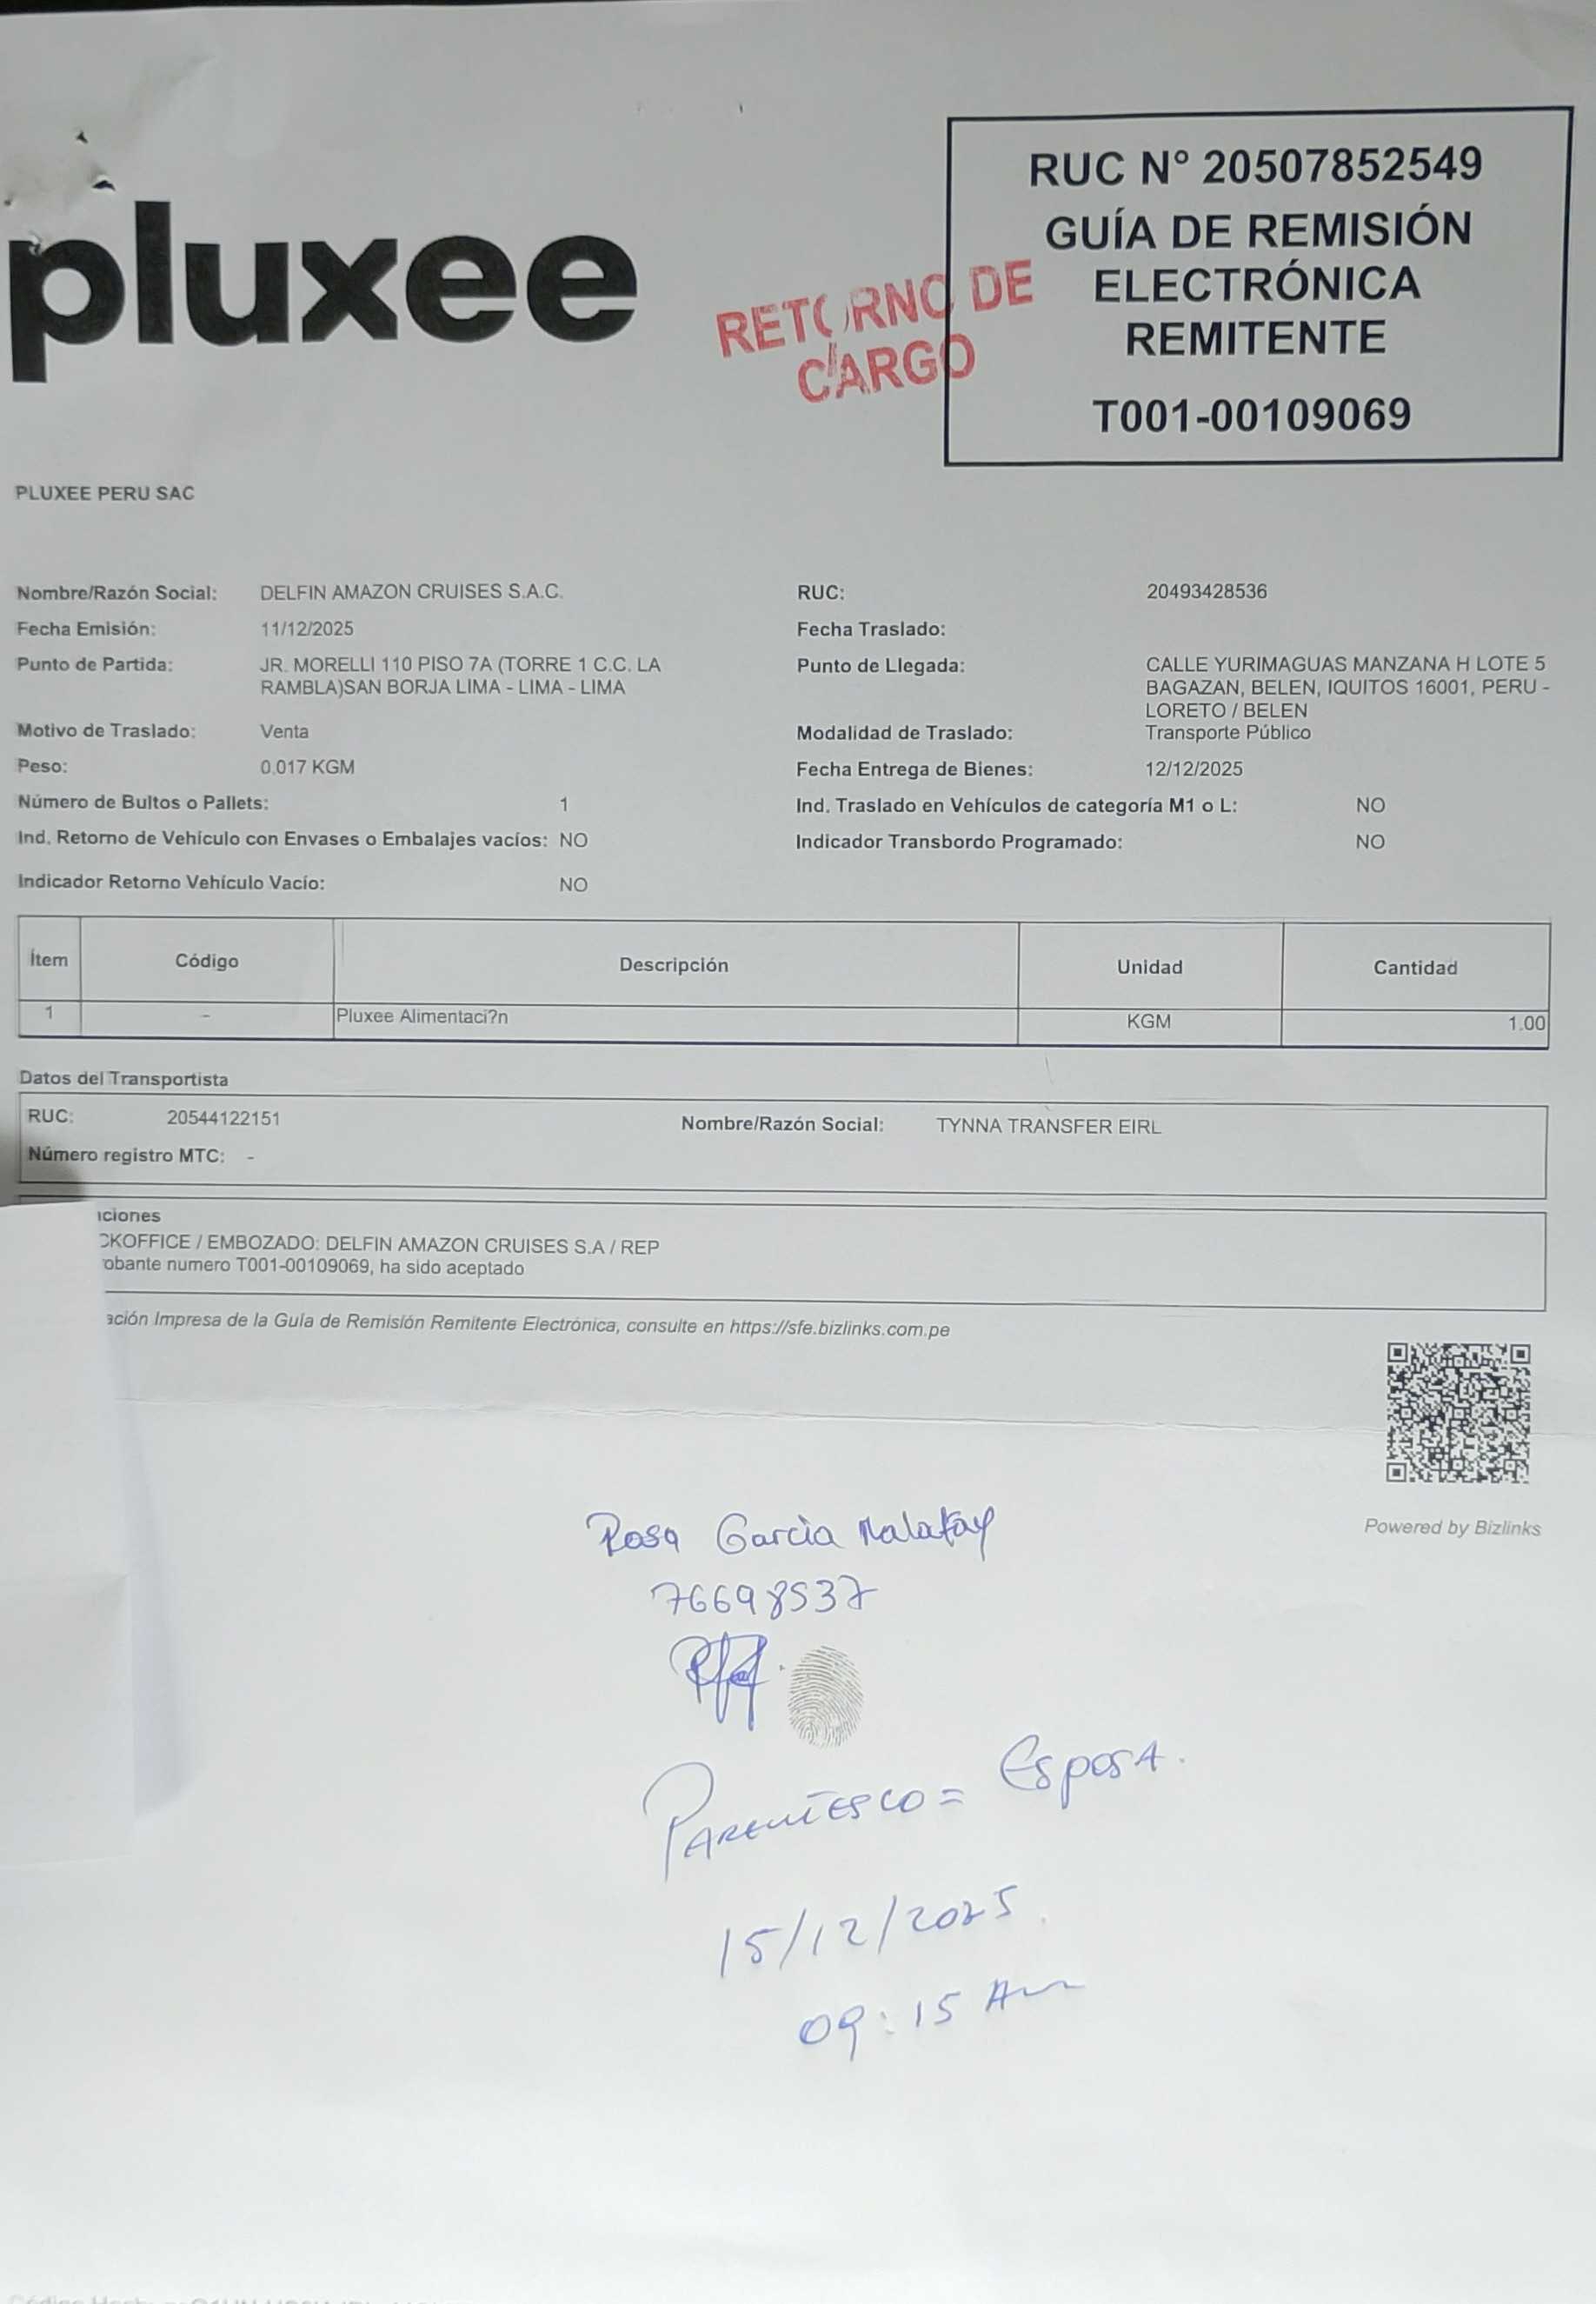 pluxee
RETORNO DE
CARGO
RUC N° 20507852549
GUÍA DE REMISIÓN
ELECTRÓNICA
REMITENTE
T001-00109069
PLUXEE PERU SAC
Nombre/Razón Social: DELFIN AMAZON CRUISES S.A.C. RUC: 20493428536
Fecha Emisión: 11/12/2025 Fecha Traslado:
Punto de Partida: JR. MORELLI 110 PISO 7A (TORRE 1 C.C. LA Punto de Llegada: CALLE YURIMAGUAS MANZANA H LOTE 5
RAMBLA)SAN BORJA LIMA - LIMA - LIMA BAGAZAN, BELEN, IQUITOS 16001, PERU -
LORETO / BELEN
Motivo de Traslado: Venta Modalidad de Traslado: Transporte Público
Peso: 0.017 KGM Fecha Entrega de Bienes: 12/12/2025
Número de Bultos o Pallets: 1 Ind. Traslado en Vehículos de categoría M1 o L: NO
Ind. Retorno de Vehículo con Envases o Embalajes vacíos: NO Indicador Transbordo Programado: NO
Indicador Retorno Vehículo Vacío: NO
Ítem Código Descripción Unidad Cantidad
1 - Pluxee Alimentaci?n KGM 1.00
Datos del Transportista
RUC: 20544122151 Nombre/Razón Social: TYNNA TRANSFER EIRL
Número registro MTC: -
ciones
CKOFFICE / EMBOZADO: DELFIN AMAZON CRUISES S.A / REP
obante numero T001-00109069, ha sido aceptado
ación Impresa de la Guía de Remisión Remitente Electrónica, consulte en https://sfe.bizlinks.com.pe
Powered by Bizlinks
Rosa Garcia
76698537
PARENTESCO = ESPOSA.
15/12/2025.
09:15 Am